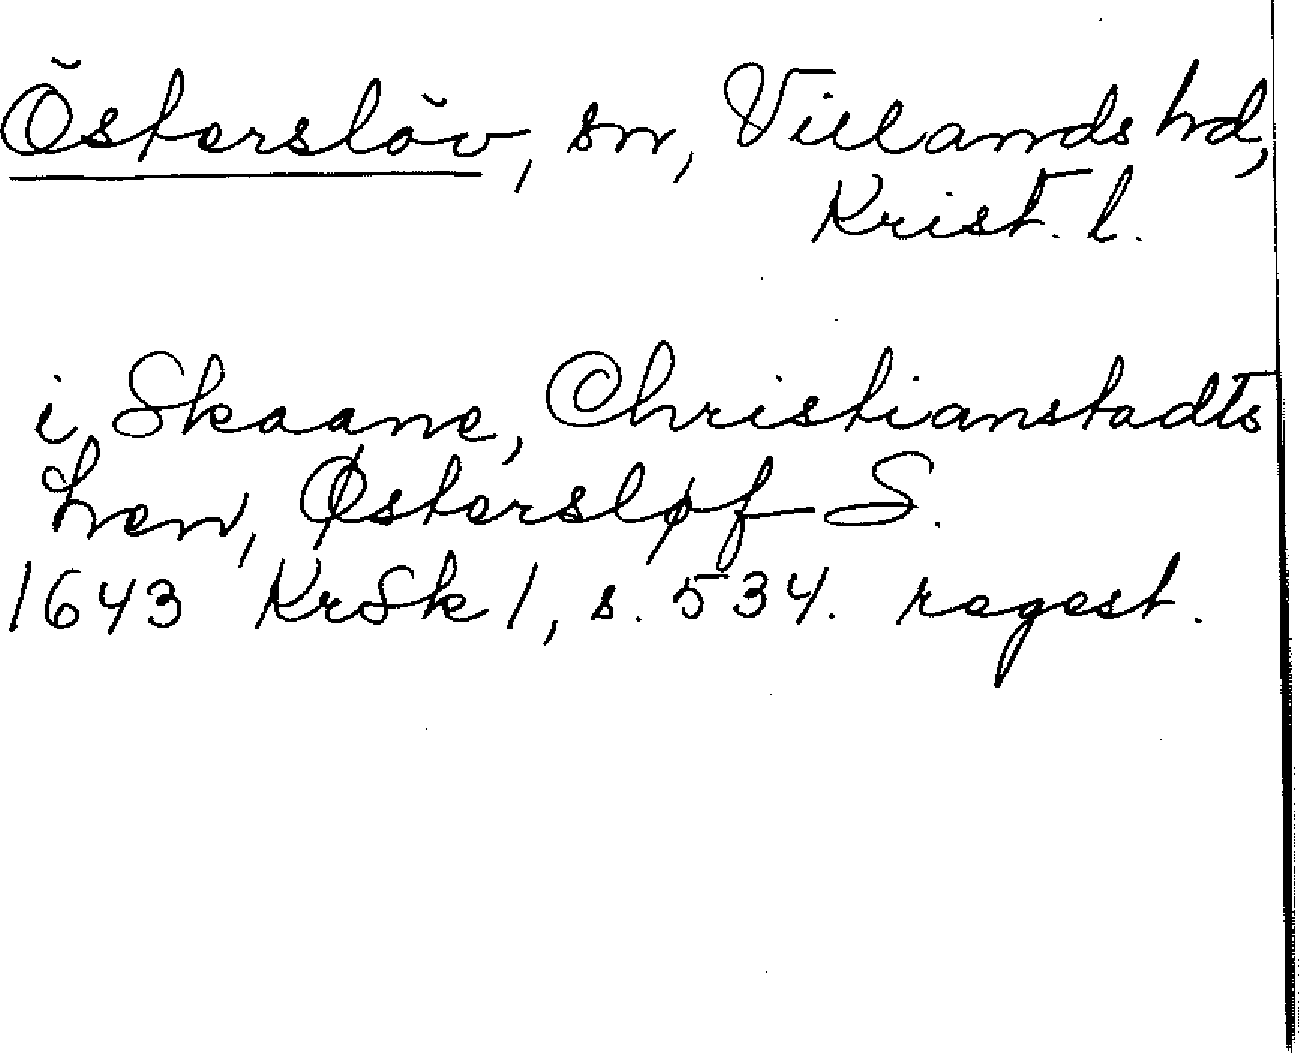 Österslöv, sn, Villands hd,
Krist. l.
i Skaane, Christianstadts
Len, Østersløf S.
1643 KrSk 1, s. 534. regest.